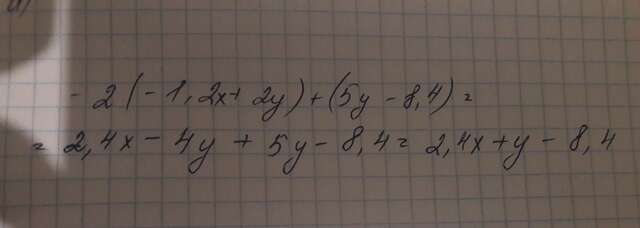 - 2 (-1,2x + 2y) + (5y - 8,4) =
= 2,4x - 4y + 5y - 8,4 = 2,4x + y - 8,4